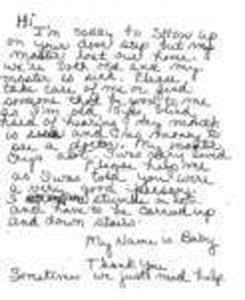 Hi
I'm sorry to show up
on your door step but my
master lost our home.
we're both old and my
master is sick. Please
take care of me or find
someone that be good to me
as I'm old, blind
hard of hearing. My
is and has money to
see a doctor. My
Guys
Please help me
as I was told you were
a very good person.
I stumble a lot
and have to be carried up
and down stairs.
My Name is Baby
Thank You
Sometimes we just need help